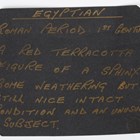 EGYPTIAN
ROMAN PERIOD 1st CENT
A RED TERRACOTTA
FIGURE OF A SPHINX
SOME WEATHERING BUT
STILL NICE INTACT
CONDITION AND AN
SUBJECT.